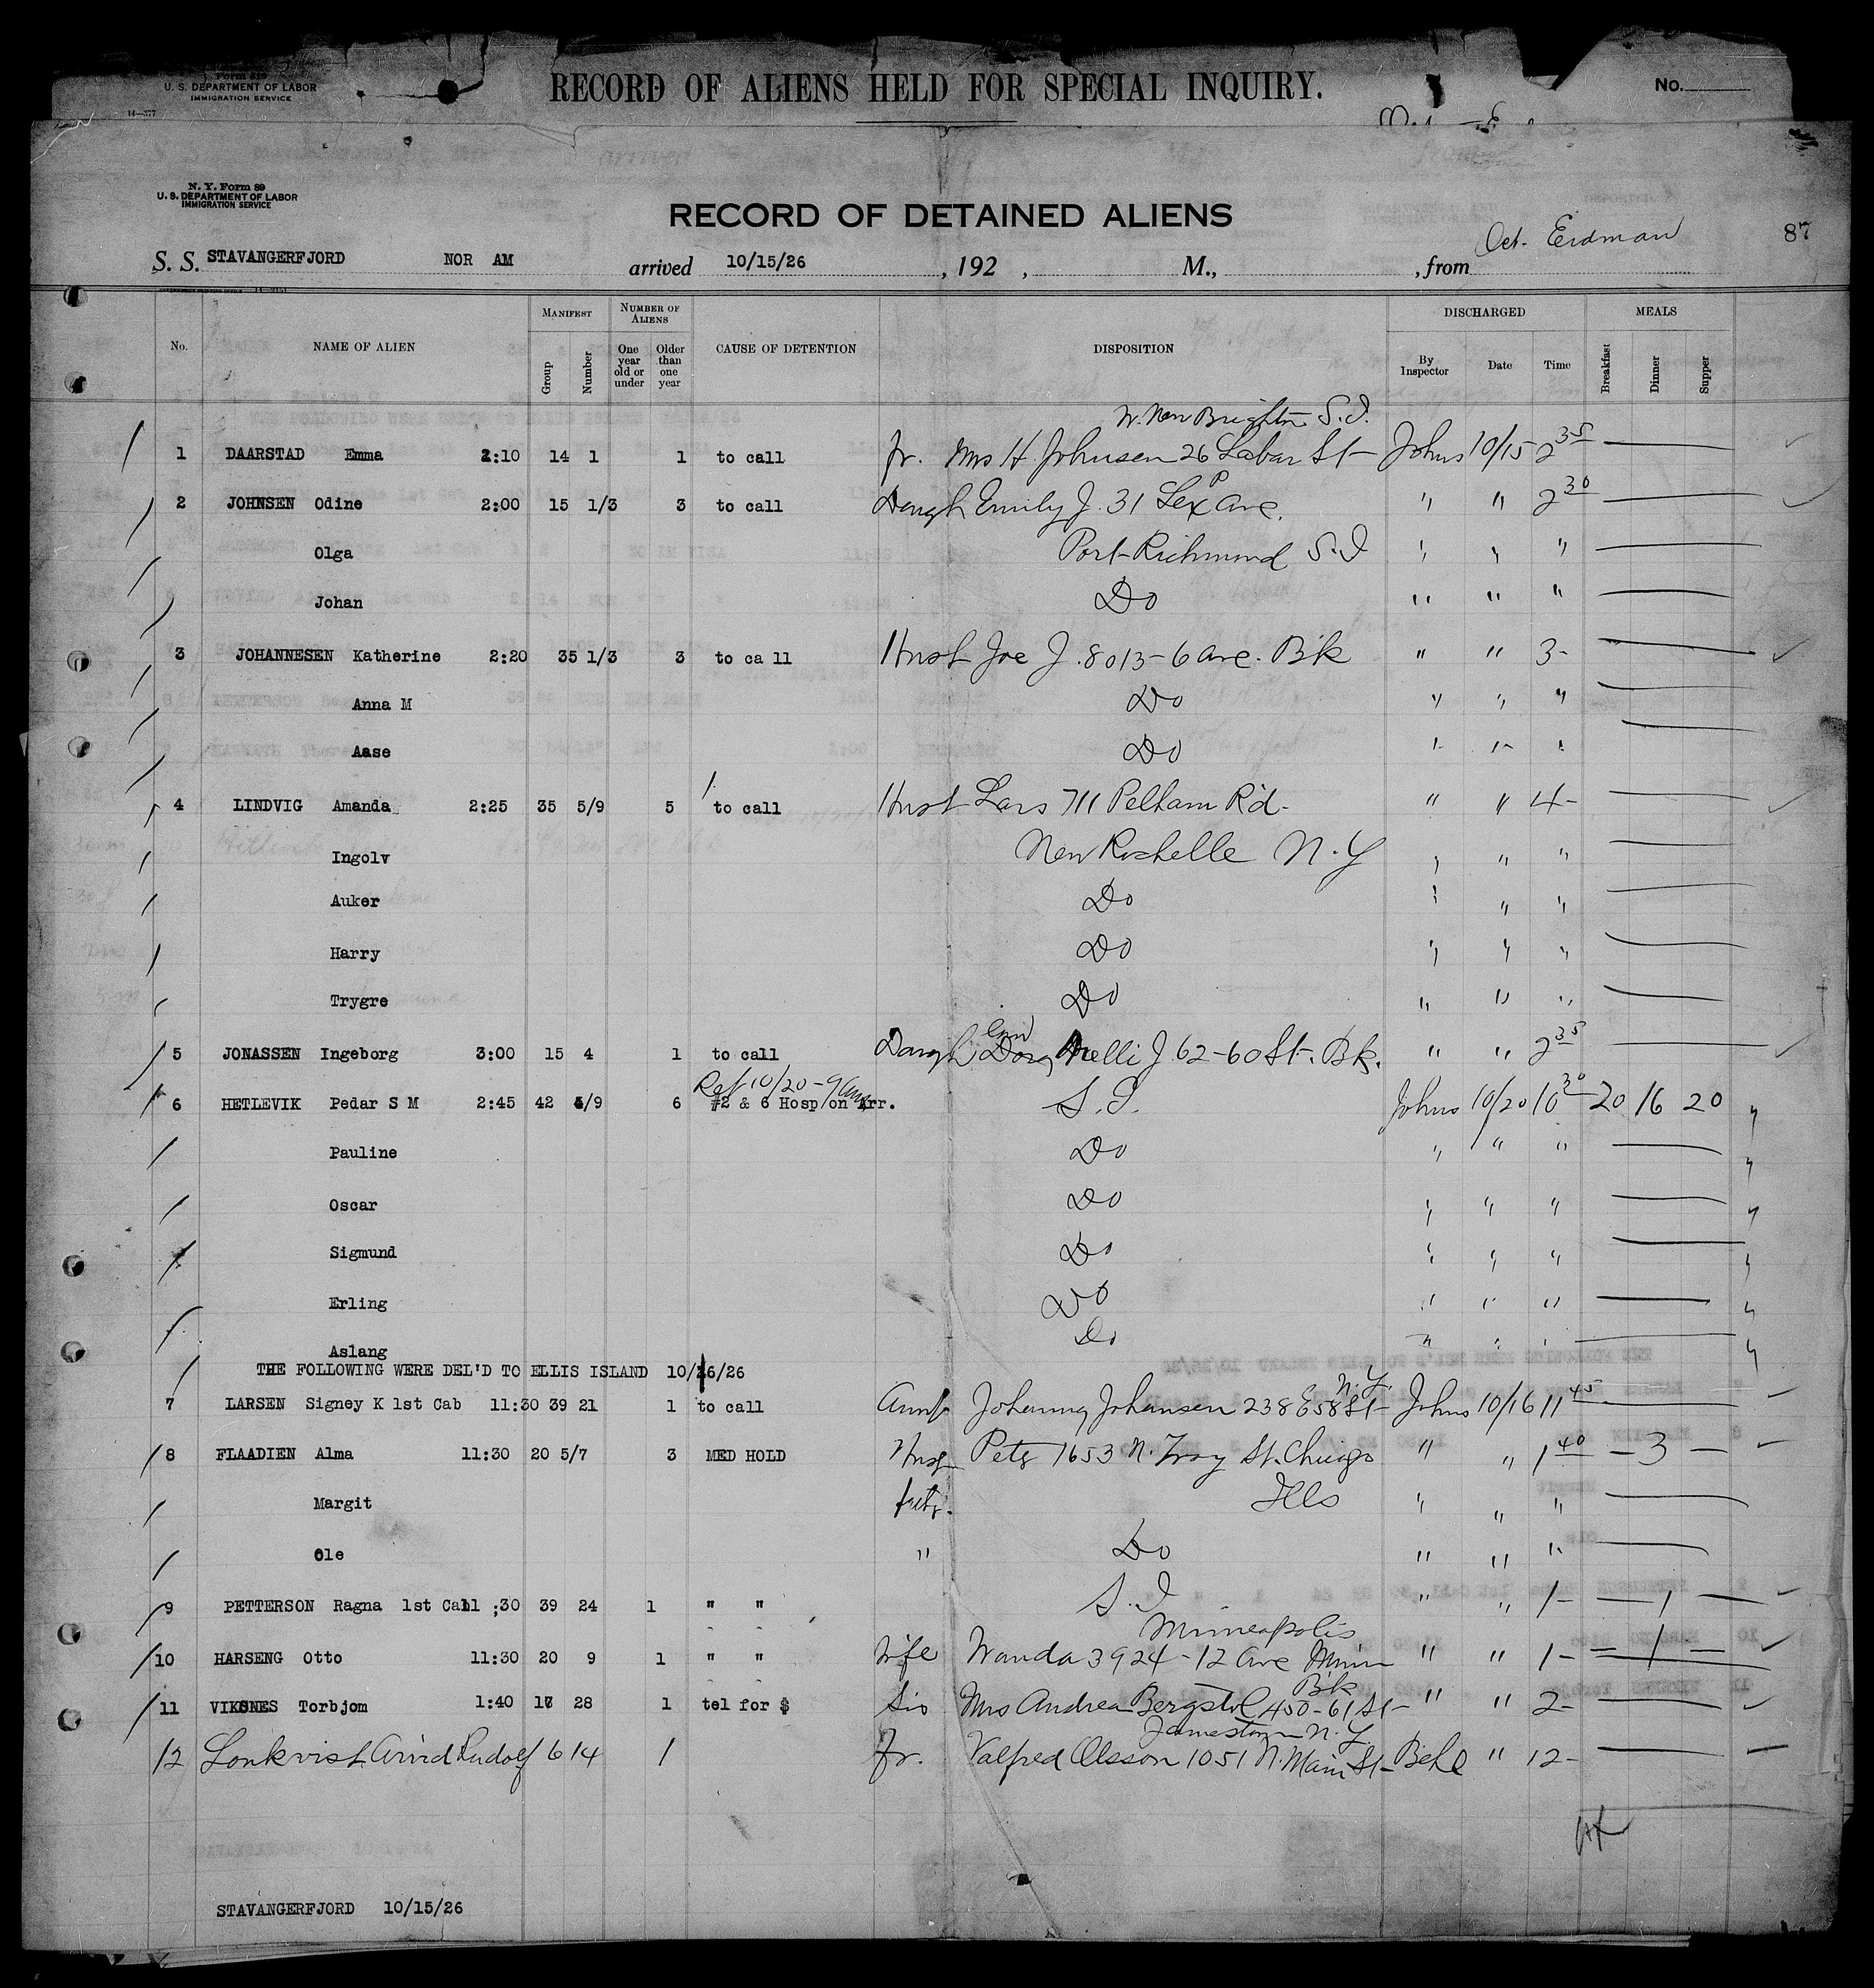 Form 818
U. S. DEPARTMENT OF LABOR
IMMIGRATION SERVICE
14—377
RECORD OF ALIENS HELD FOR SPECIAL INQUIRY.
No.
N. Y. Form 89
U. S. DEPARTMENT OF LABOR
IMMIGRATION SERVICE
RECORD OF DETAINED ALIENS
87
Oct. Erdman
S. S. STAVANGERFJORD NOR AM arrived 10/15/26, 192 , M., , from
No. NAME OF ALIEN MANIFEST Group Number NUMBER OF ALIENS One year old or under Older than one year CAUSE OF DETENTION DISPOSITION DISCHARGED By Inspector Date Time MEALS Breakfast Dinner Supper
W. New Brighton S.I.
1 DAARSTAD Emma 2:10 14 1 1 to call fr. Mrs H. Johnsen 26 Labar St- Johns 10/15 2 35
2 JOHNSEN Odine 2:00 15 1/3 3 to call Daugh Emily J. 31 Lex Ave. " " 2 30
Olga Port Richmond S.I " " "
Johan Do " " "
3 JOHANNESEN Katherine 2:20 35 1/3 3 to ca ll Husb Joe J. 8013-6 Ave. Bk " " 3-
Anna M Do " " "
Aase Do " " "
4 LINDVIG Amanda 2:25 35 5/9 5 to call Husb Lars 711 Pelham Rd- " " 4-
Ingolv New Rochelle N.Y " " "
Auker Do " " "
Harry Do " " "
Trygre Do " " "
5 JONASSEN Ingeborg 3:00 15 4 1 to call Daugh Nelli J. 62-60 St. Bk. " " 2 35
Ref 10/20-9 am
6 HETLEVIK Pedar S M 2:45 42 4/9 6 #2 & 6 Hosp/on Arr. S.I. Johns 10/20 10 30 20 16 20
Pauline Do " " "
Oscar Do " " "
Sigmund Do " " "
Erling Do " " "
Aslang Do " " "
THE FOLLOWING WERE DEL'D TO ELLIS ISLAND 10/16/26
N.Y.
7 LARSEN Signey K 1st Cab 11:30 39 21 1 to call Aunt Johanna Johansen 238 E 58 St- Johns 10/16 11 45
8 FLAADIEN Alma 11:30 20 5/7 3 MED HOLD Husb Peter 1653 N. Troy St. Chicago " " 1 40 - 3 -
Margit fath. Ills " " "
Ole " Do " " "
9 PETTERSON Ragna 1st Cab 11 ;30 39 24 1 " " S.I " " 1- - 1 -
Minneapolis
10 HARSENG Otto 11:30 20 9 1 " " Wife Wanda 3924-12 Ave Minn " " 1- - 1 -
Bk
11 VIKSNES Torbjom 1:40 17 28 1 tel for $ Sis Mrs Andrea Bergstol 450-61 St- " " 2-
Jamestown N.Y.
12 Lonkvist Arvid Rudolf 6 14 1 Fr. Valfred Olsson 1051 N. Main St- Behl " 12-
STAVANGERFJORD 10/15/26